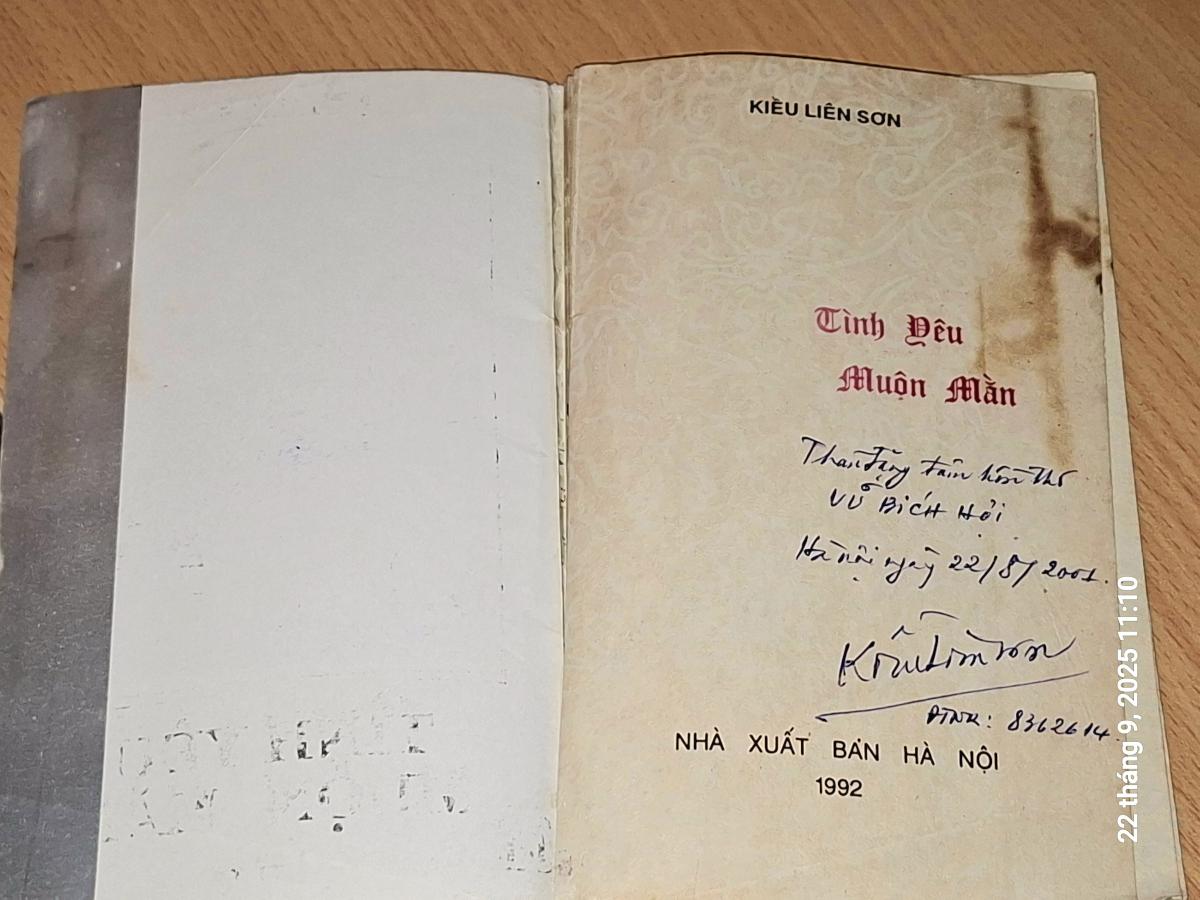 KIỀU LIÊN SƠN
Tình Yêu
Muộn Mằn
Thân tặng tâm hồn thơ
VŨ BíCH Hỏi
Hà nội ngày 22/8/2001.
Kiều Liên Sơn
ĐTNR: 8362614.
NHÀ XUẤT BẢN HÀ NỘI
1992
22 tháng 9, 2025 11:10